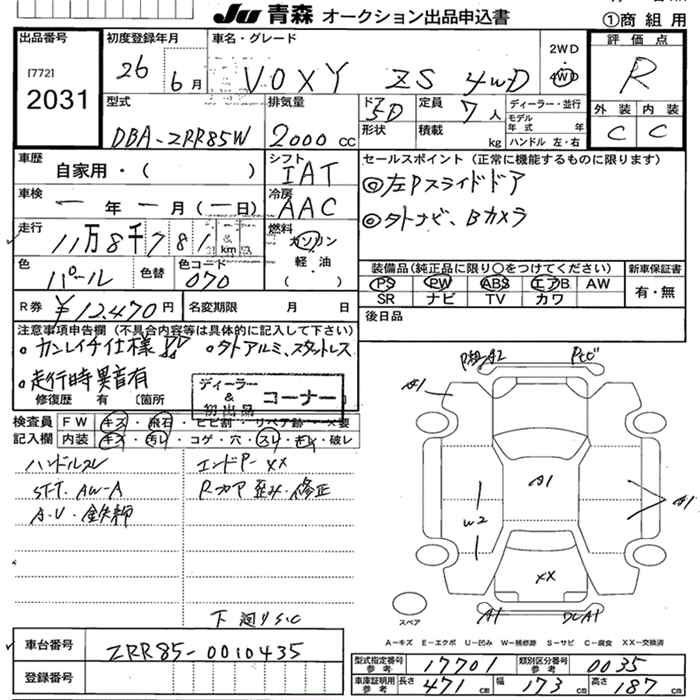 JU 青森 オークション出品申込書
①商組用
出品番号
[772]
2031
初度登録年月
26 6月
車名・グレード
VOXY ZS 4WD
2WD
4WD
評価点
R
外装 内装
C C
型式
DBA-ZRR85W
排気量
2000 cc
ドア 5D
形状
定員 7人
積載 kg
ディーラー・並行
モデル年式 年
ハンドル 左・右
車歴
自家用・( )
シフト
IAT
車検
一年一月(一日)
冷房
AAC
走行
11万8千781 km
燃料
ガソリン
軽油
( )
色
パール
色替
色コード
070
セールスポイント(正常に機能するものに限ります)
◎左Pスライドドア
◎外ナビ、Bカメラ
装備品(純正品に限り○をつけてください)
新車保証書
PS PW ABS エアB AW
SR ナビ TV カワ
有・無
R券 ¥12,470円
名変期限 月 日
後日品
注意事項申告欄(不具合内容等は具体的に記入して下さい)
・カンレイチ仕様 ・外アルミ、スタットレス
・走行時異音有
修復歴 有 〔箇所 〕
ディーラー
&
初出品
コーナー
検査員 FW キズ・飛石・ヒビ割・リペア跡・×要
記入欄 内装 キズ・汚レ・コゲ・穴・スレ・キレ・破レ
ハンドルスレ
エンドP-XX
STT. AW-A
Rフロア 歪み・修正
A.U.
下廻りS.C
A1
A1
W2
A1
XX
A1
A1
スペア
A=キズ E=エクボ U=凹み W=補修跡 S=サビ C=腐食 XX=交換済
車台番号
ZRR85-0010435
登録番号
型式指定番号 参考 17701
類別区分番号 参考 0035
車庫証明用 参考 長さ 471cm 幅 173cm 高さ 187cm